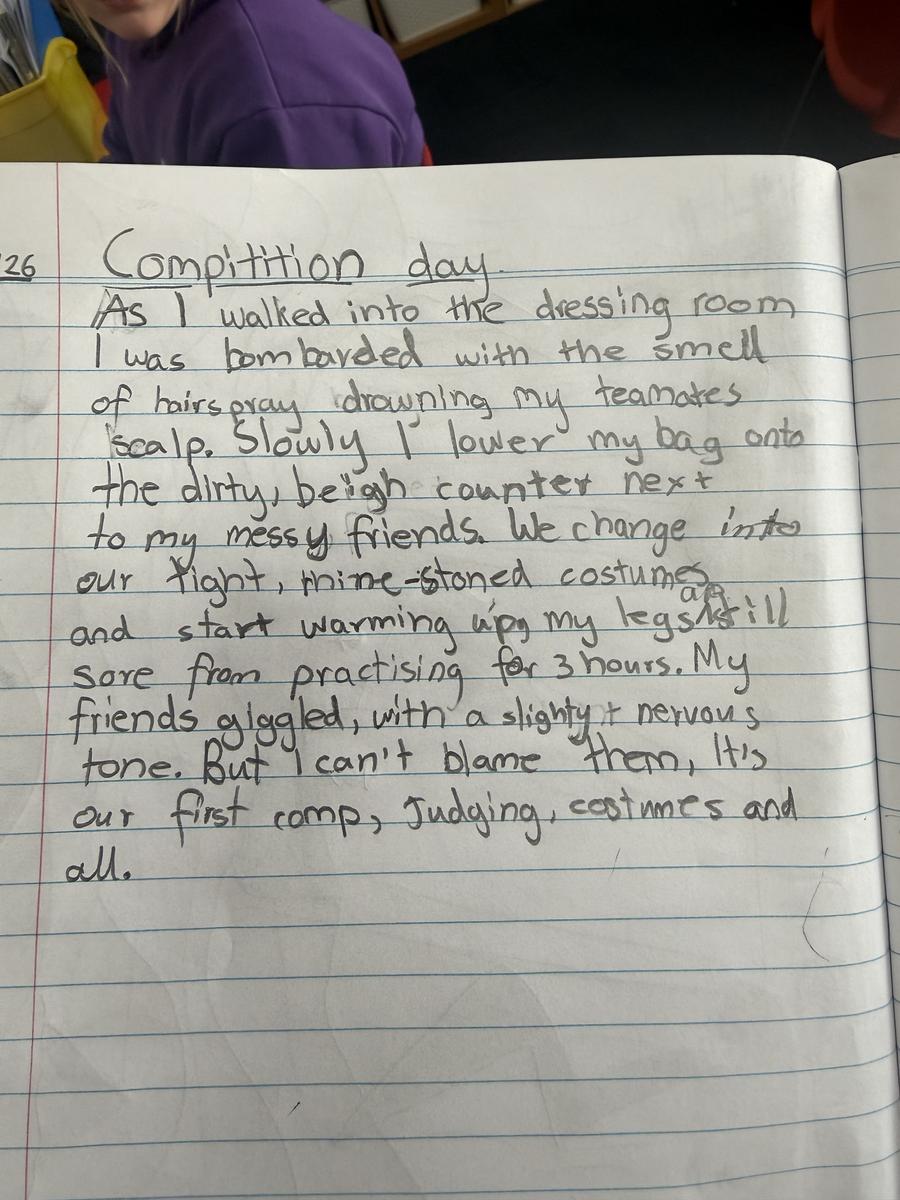 26
Compitition day.
As I walked into the dressing room
I was bombarded with the smell
of hairspray drowning my teamates
scalp. Slowly I lower my bag onto
the dirty, beigh counter next
to my messy friends. We change into
our tight, rhine-stoned costumes
and start warming up, my legs are still
sore from practising for 3 hours. My
friends giggled, with a slighty nervous
tone. But I can't blame them, It's
our first comp, Judging, costumes and
all.